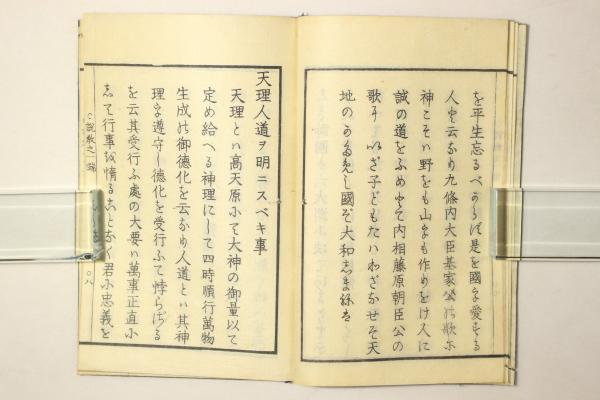 を平生忘るべからず是を國を愛する
人と云なり九條内大臣基家公の歌に
神こそハ野をも山をも作りをけ人に
誠の道をふめとて内相藤原朝臣公の
歌にいざ子どもたハわざなせそ天
地のかためし國ぞ大和しま根を
天理人道ヲ明ニスベキ事
天理とハ高天原にて大神の御量以て
定め給へる神理にして四時順行萬物
生成の御德化を云なり人道とハ其神
理を遵守し德化を受行ふて悖らざる
を云其受行ふ處の大要ハ萬事正直に
して行事を惰ることなく君に忠義を
説教之一端
八